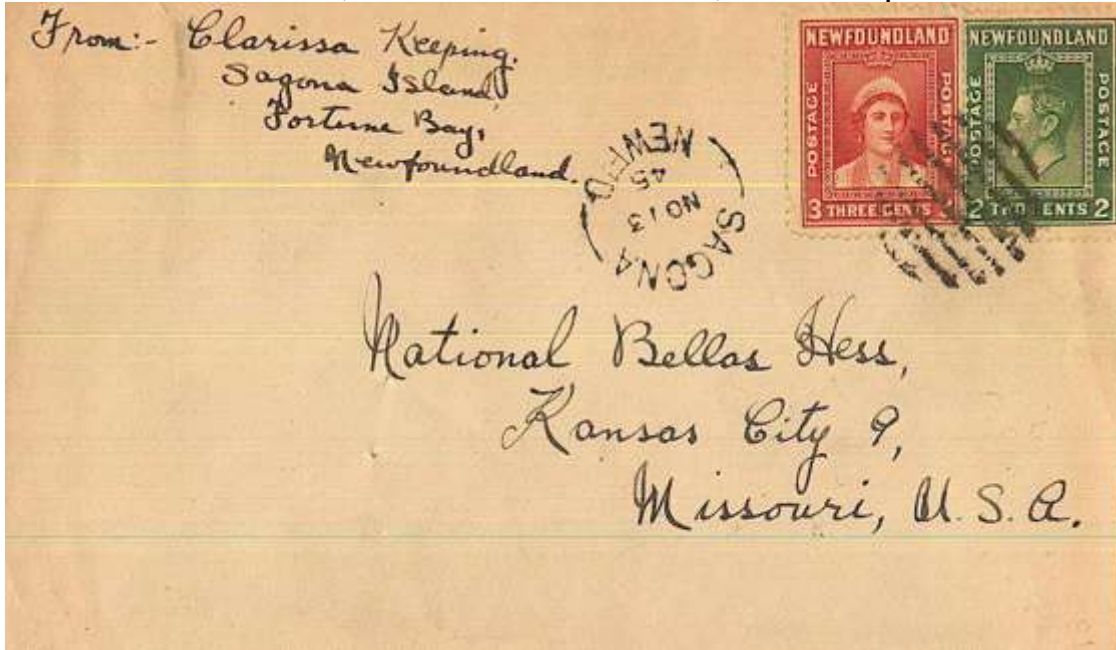 From:- Clarissa Keeping.
Sagona Island,
Fortune Bay,
Newfoundland.
NEWFOUNDLAND
POSTAGE
POSTAGE
3 THREE CENTS
NEWFOUNDLAND
POSTAGE
POSTAGE
2 TWO CENTS 2
SAGONA
NO 13
45
NEWFD
National Bellas Hess,
Kansas City 9,
Missouri, U. S. A.